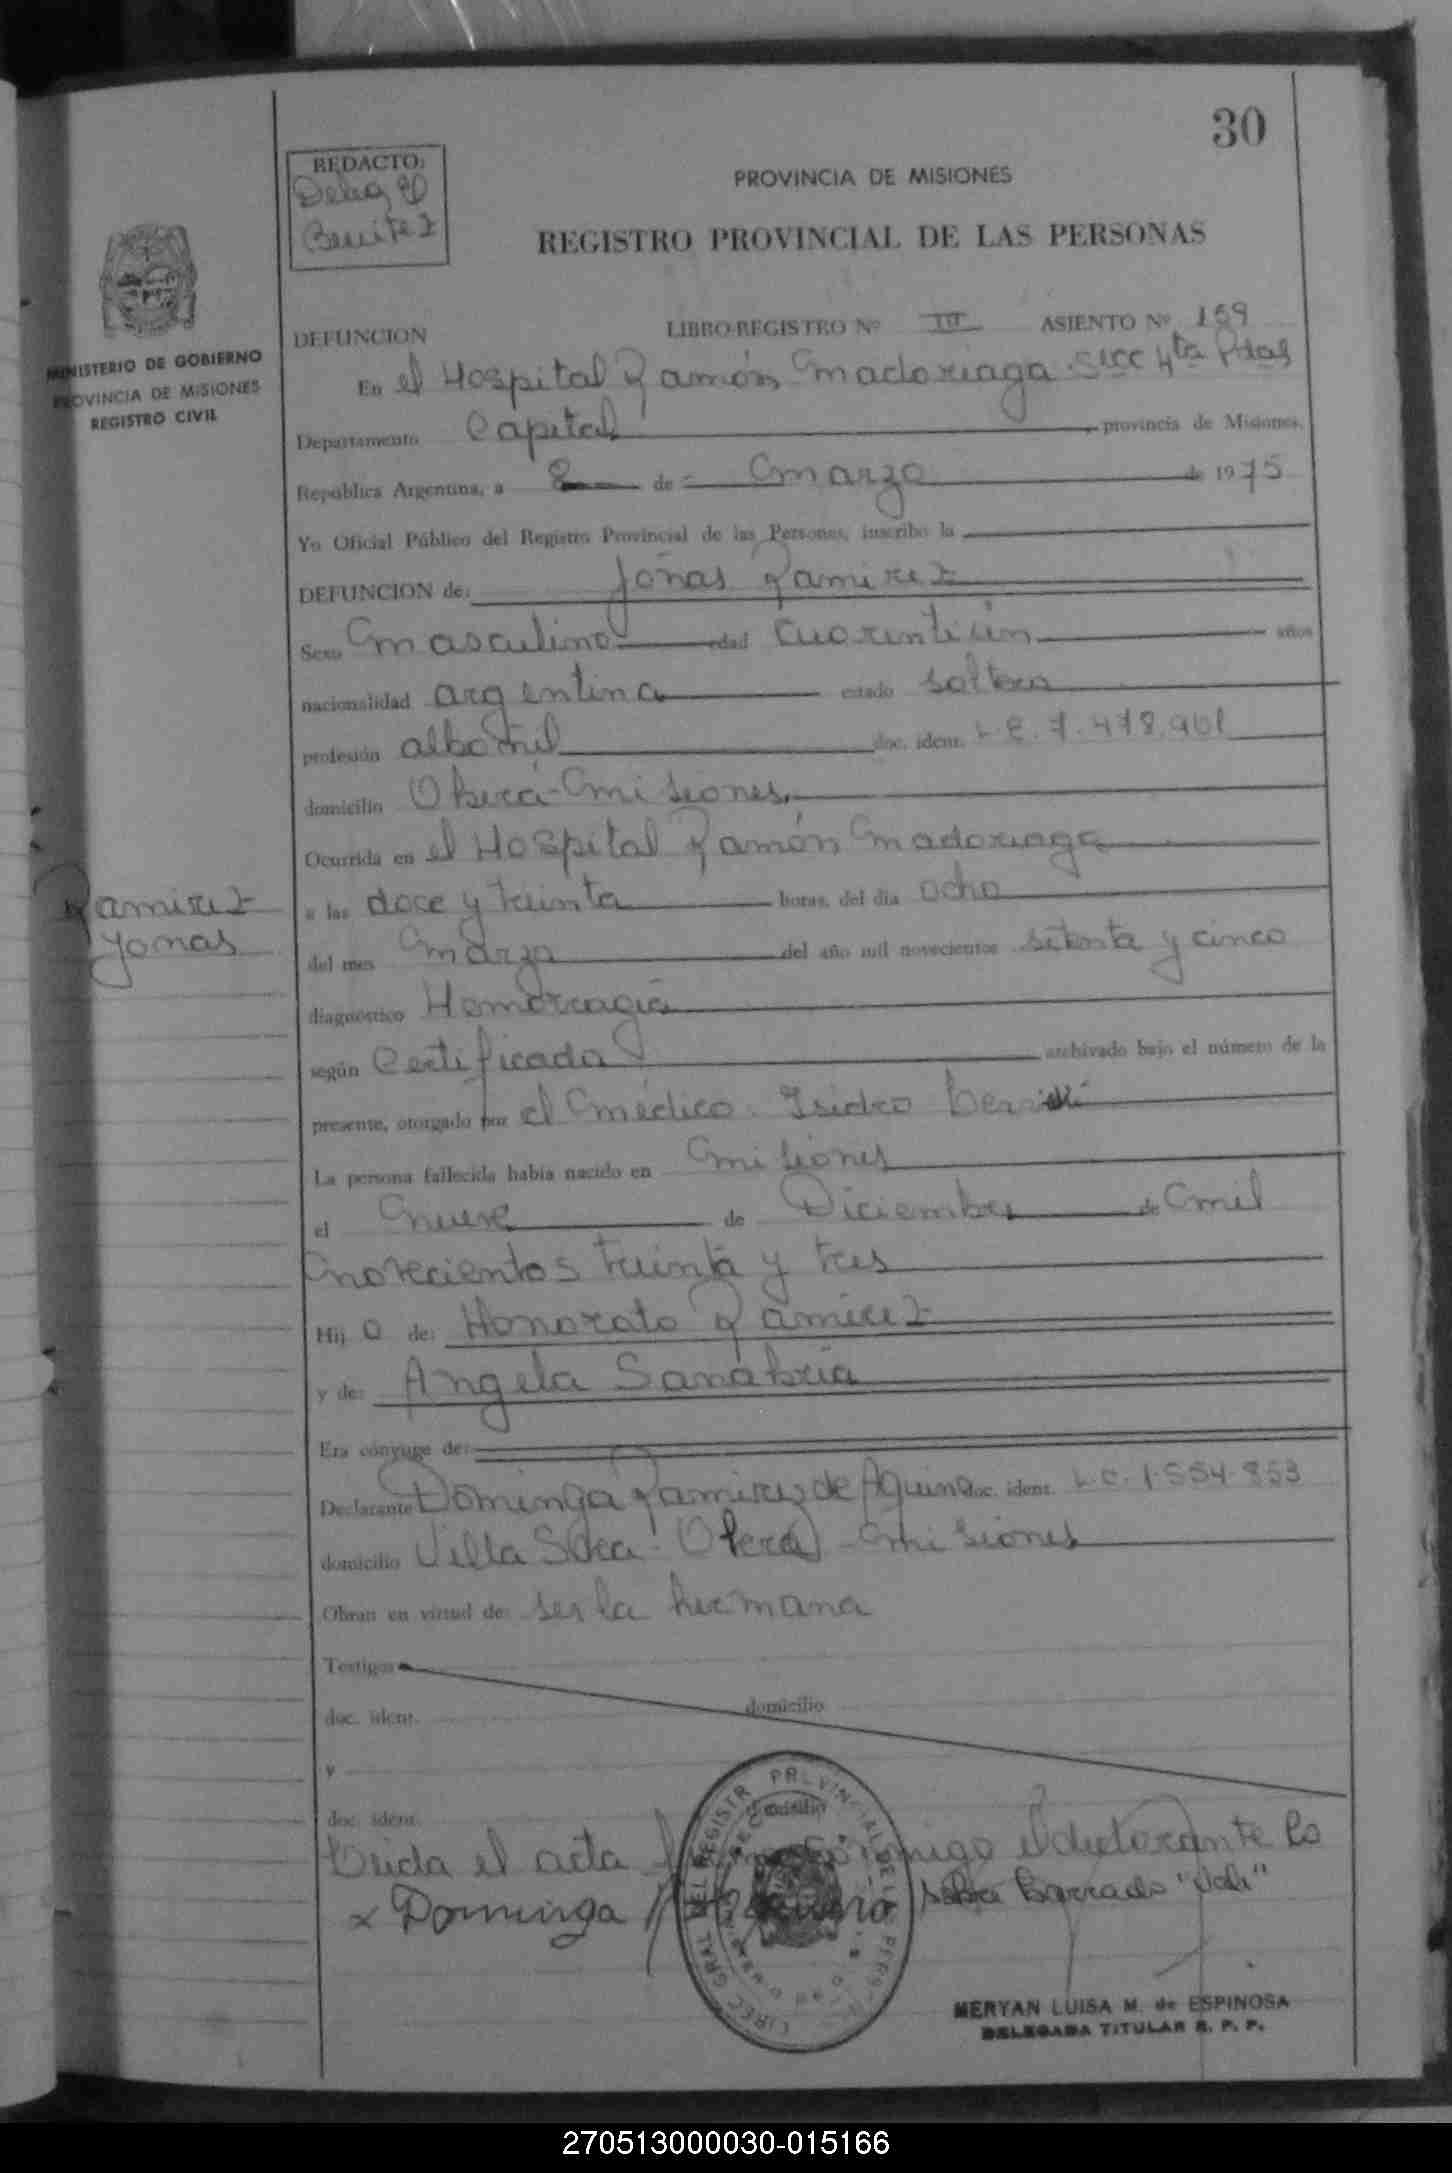 30
REDACTO:
Deleg
Benitez
PROVINCIA DE MISIONES
REGISTRO PROVINCIAL DE LAS PERSONAS
MINISTERIO DE GOBIERNO
PROVINCIA DE MISIONES
REGISTRO CIVIL
DEFUNCION LIBRO-REGISTRO Nº III ASIENTO Nº 159
En el Hospital Ramón Madoriaga Secc 4ta Pdas
Departamento Capital provincia de Misiones,
República Argentina, a 8 de Marzo de 1975
Yo Oficial Público del Registro Provincial de las Personas, inscribo la
DEFUNCION de: Jonas Ramirez
Sexo Masculino edad cuarintiún años
nacionalidad argentina estado soltero
profesión albañil doc. ident. L.E. 7.478.901
domicilio Oberá-Misiones.
Ocurrida en el Hospital Ramón Madoriaga
a las doce y treinta horas, del día ocho
del mes Marzo del año mil novecientos setenta y cinco
diagnóstico Hemorragia
según Certificado archivado bajo el número de la
presente, otorgado por el Médico Isidro
La persona fallecida había nacido en Misiones
el Nueve de Diciembre de Mil
Novecientos treinta y tres
Hij o de: Honorato Ramirez
y de: Angela Sanabria
Era cónyuge de:
Declarante Dominga Ramirez de Aquino doc. ident. L.C. 1.554.853
domicilio Villa Oberá - Misiones
Obran en virtud de: ser la hermana
Ramirez
Jonas
Testigos
doc. ident. domicilio
y
doc. ident. domicilio
Leída el acta conmigo el declarante lo
sobre borrado "Vale"
x Dominga Aquino
MERYAN LUISA M. de ESPINOSA
DELEGADA TITULAR R. P. P.
270513000030-015166